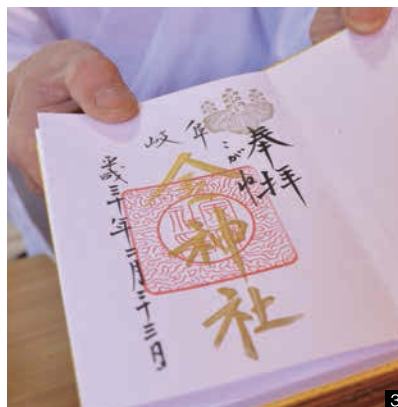 奉拝
岐阜
こがね
金神社
平成三十年二月二十三日
3